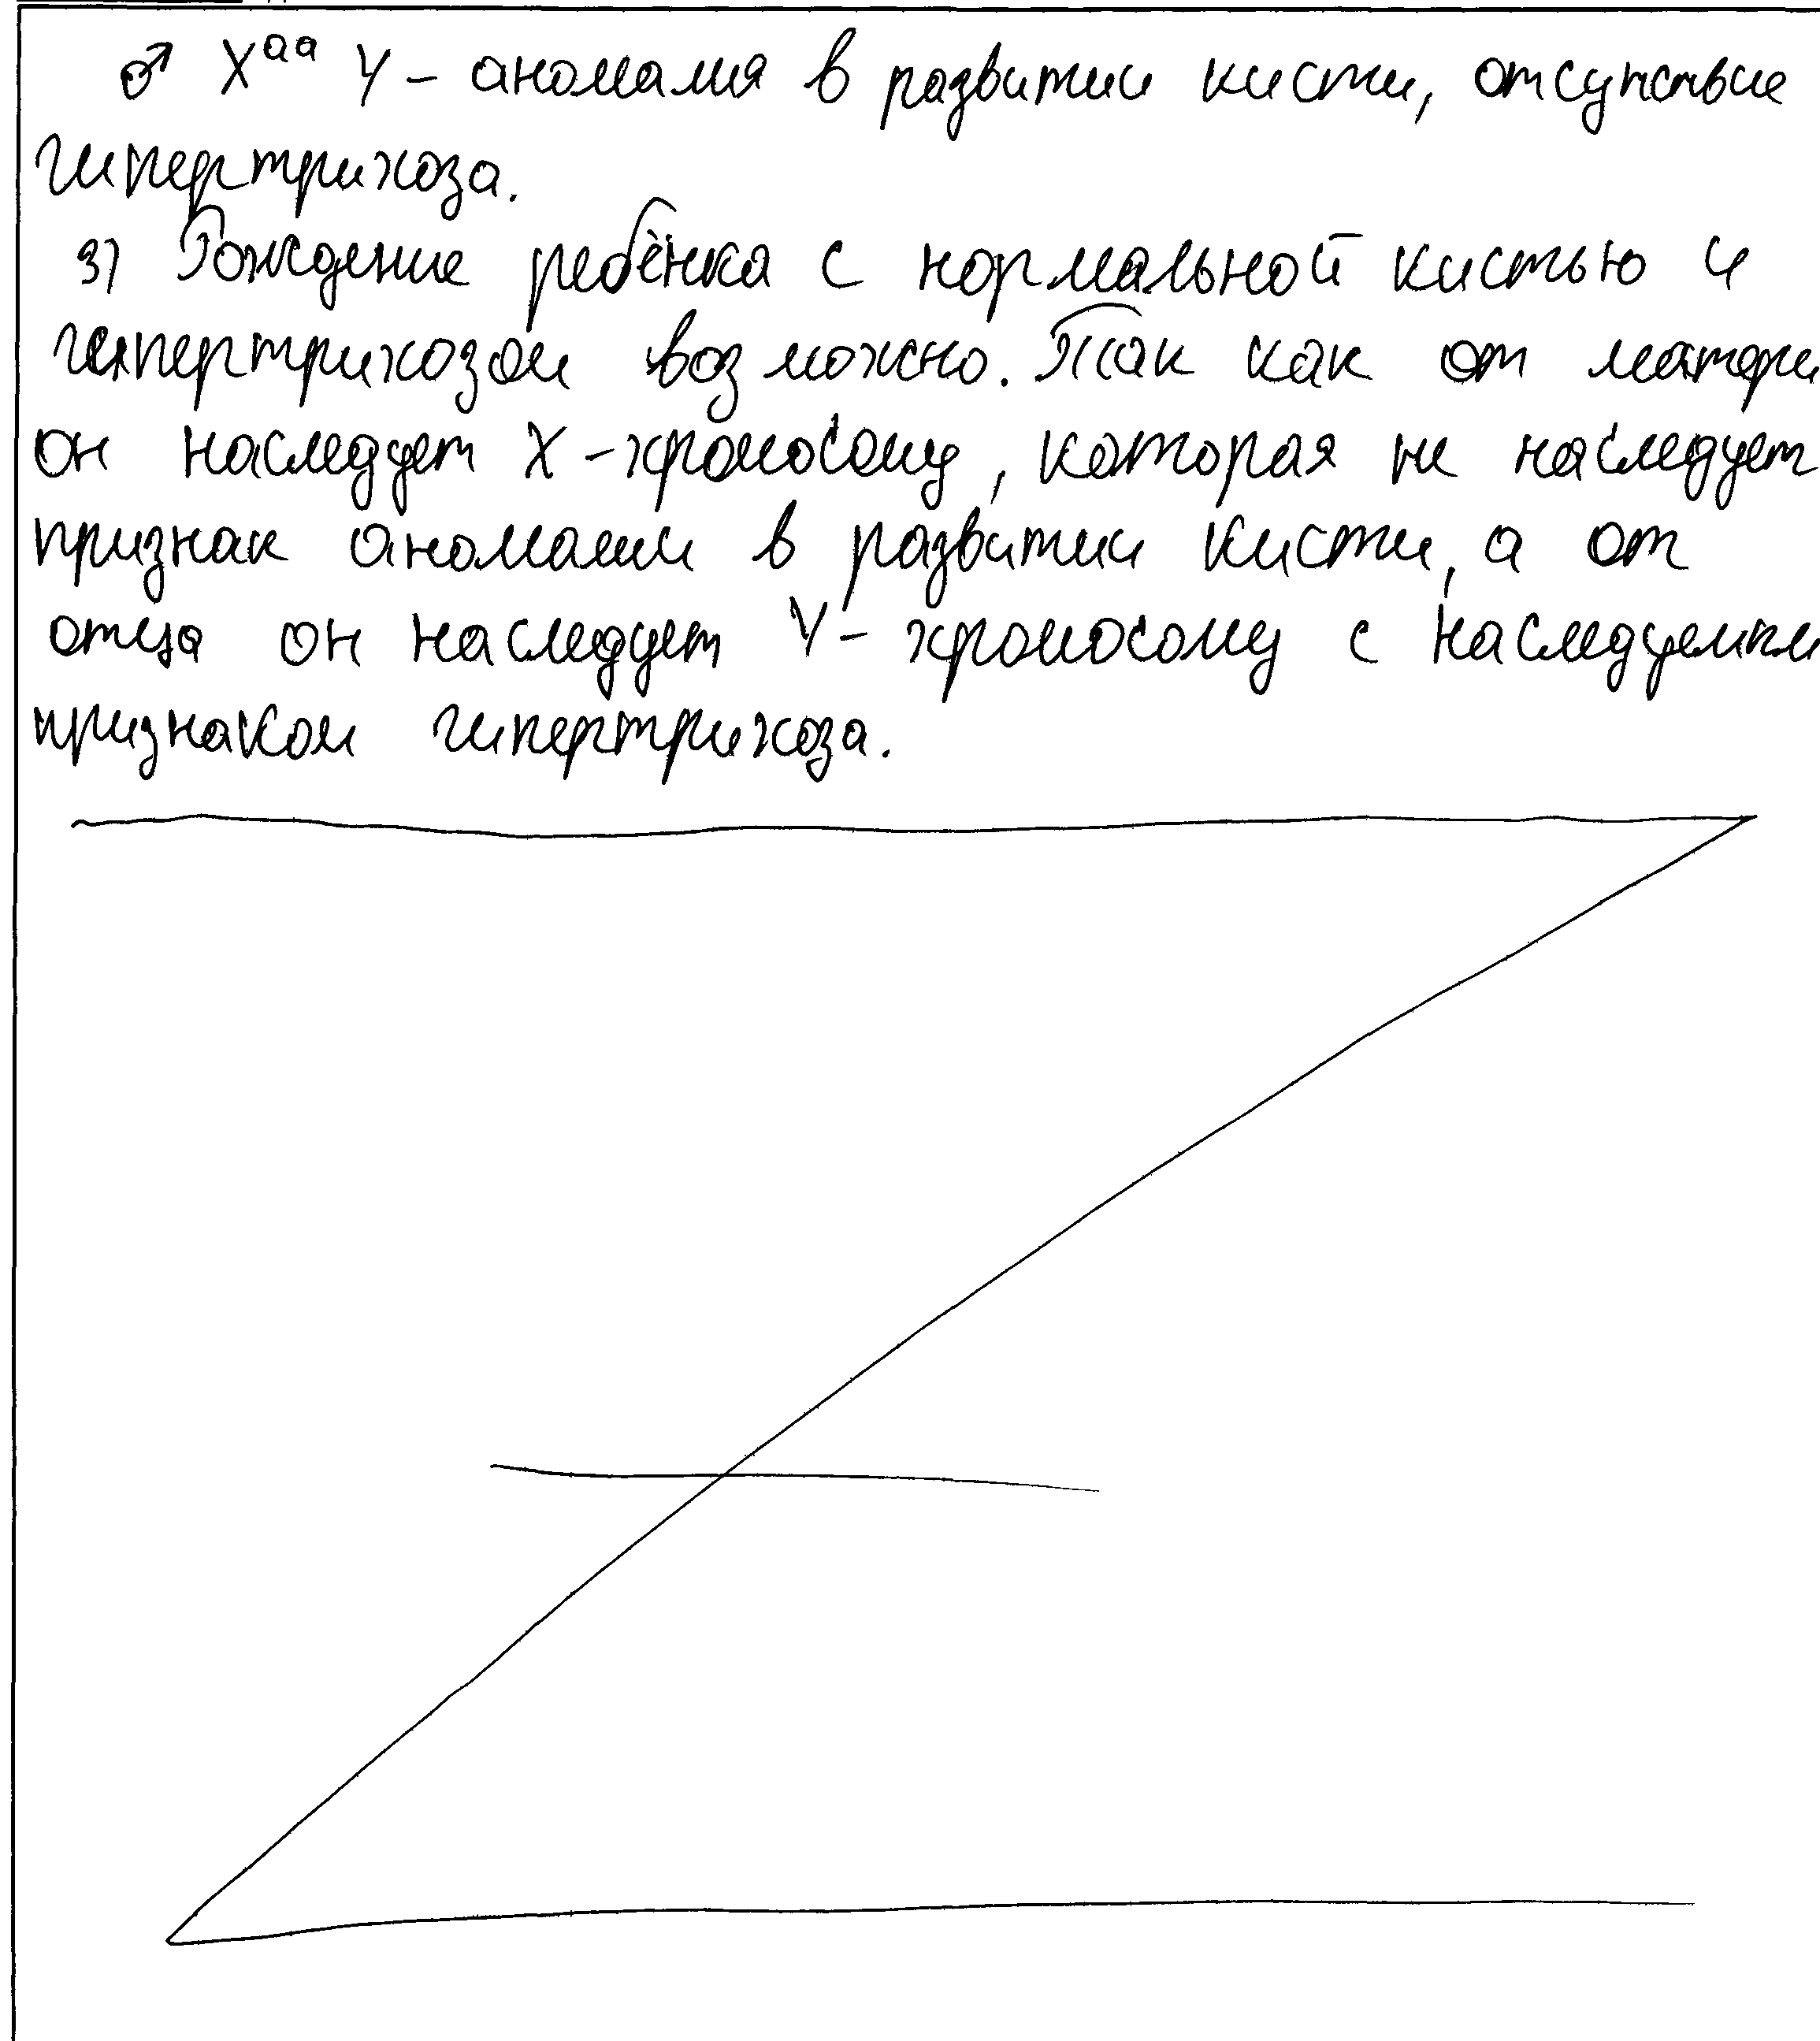 ♂ Xᵃᵃ Y – аномалия в развитии кисти, отсутствие
гипертрихоза.
3) Рождение ребёнка с нормальной кистью и
гипертрихозом возможно. Так как от матери
он наследует X-хромосому, которая не наследует
признак аномалии в развитии кисти, а от
отца он наследует Y-хромосому с наследуемым
признаком гипертрихоза.